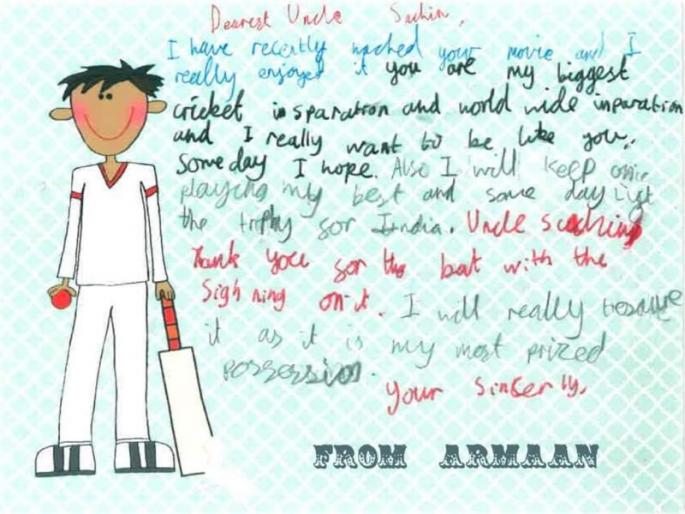 Dearest Uncle Sachin,
I have recently wached your movie and I
really enjoyed it you are my biggest
cricket insparatron and world wide inparation
and I really want to be like you,
some day I hope. Also I will keep
playing my best and some day List
the trophy for India. Uncle Sachin
Thank you for the bat with the
Sighning on it. I will really tresure
it as it is my most prized
possession.
your sinserly,
FROM ARMAAN